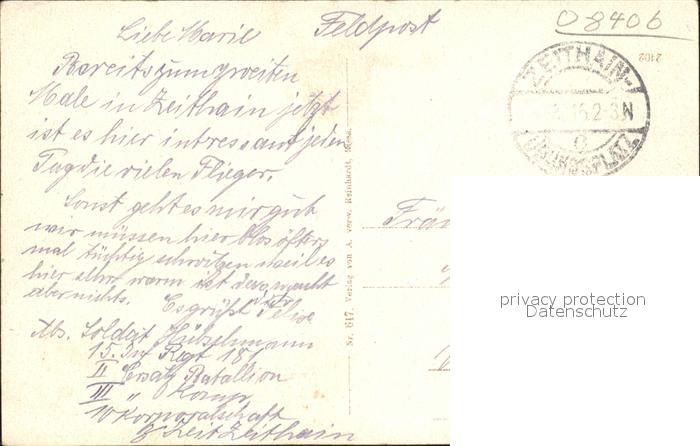 08406
Liebe Marie Feldpost
Bereits zum zweiten
Male in Zeithain jetzt
ist es hier intressant jeden
Tag die vielen Flieger.
Sonst geht es mir gut
wir müssen hier blos öfters
mal tüchtig schwitzen weil es
hier sehr warm ist das macht
aber nichts. Es grüßt
Felix
Abs. Soldat Hübschmann
15. Inf Regt 181
II Ersatz Batallion
III " Komp.
10 Korporalschaft
z Zeit Zeithain
ZEITHAIN-
16.2-3N
c
ÜBUNGSPLATZ
2102
Nr. 647. Verlag von A. verw. Reinhardt,
privacy protection
Datenschutz